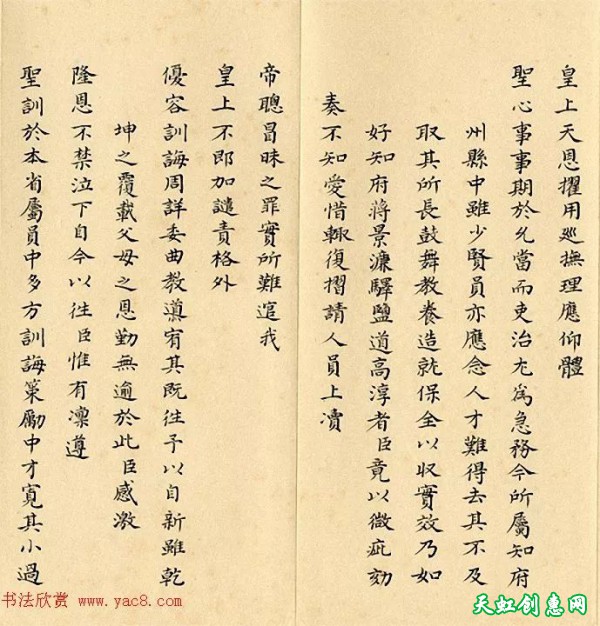 皇上天恩擢用巡撫理應仰體
聖心事事期於允當而吏治尤為急務今所屬知府
州縣中雖少賢員亦應念人才難得去其不及
取其所長鼓舞教養造就保全以収實效乃如
好知府蔣景濂驛鹽道高淳者臣竟以微疵劾
奏不知愛惜輙復摺請人員上瀆
帝聰冒昧之罪實所難逭我
皇上不即加譴責格外
優容訓誨周詳委曲教導宥其既往予以自新雖乾
坤之覆載父母之恩勤無逾於此臣感激
隆恩不禁泣下自今以徃臣惟有凛遵
聖訓於本省屬員中多方訓誨策勵中才寬其小過
书法欣赏 www.yac8.com
天虹创意网